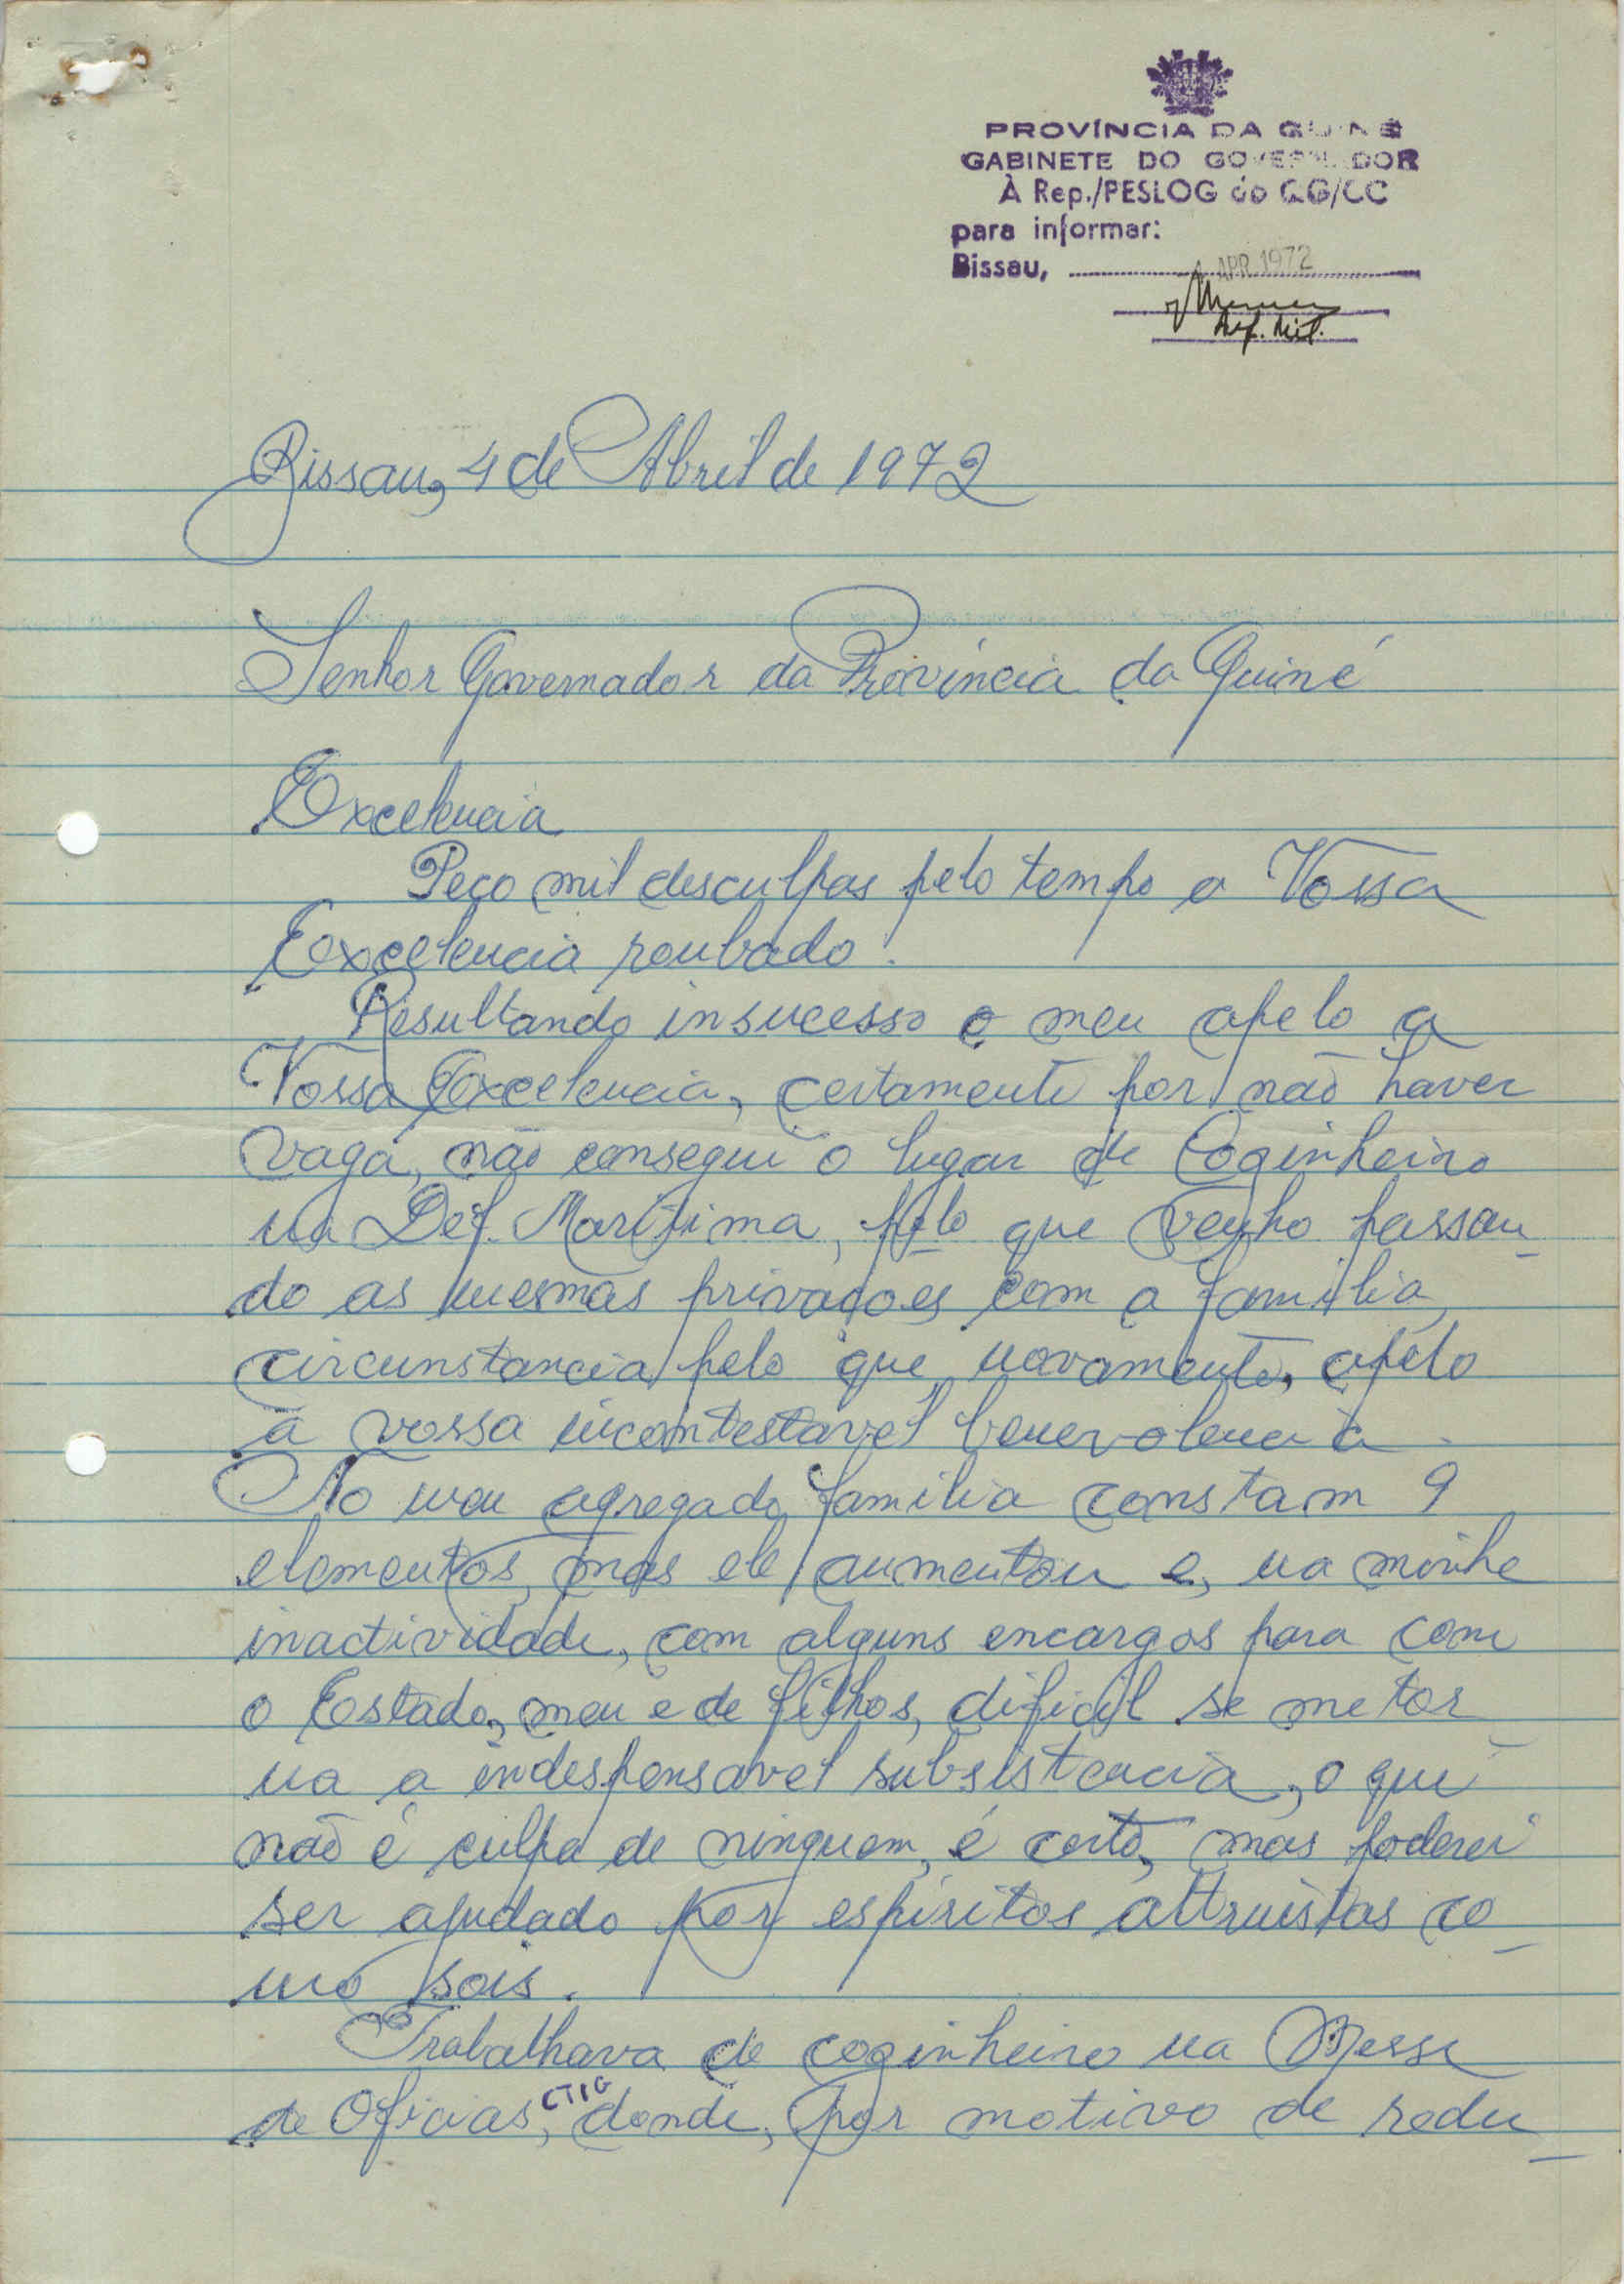 PROVÍNCIA DA GUINÉ
GABINETE DO GOVERNADOR
À Rep./PESLOG do QG/CC
para informar:
Bissau, APR 1972
Bissau, 4 de Abril de 1972
Senhor Governador da Provincia da Guiné
Excelencia
Peço mil desculpas pelo tempo a Vossa
Excelencia roubado.
Resultando insucesso o meu apelo a
Vossa Excelencia, certamente por não haver
vaga, não consegui o lugar de Coginheiro
na Def. Maritima, pelo que venho passan_
do as mesmas privações com a familia,
circunstancia pelo que novamente, apelo
a vossa incontestavel benevolencia.
No meu agregado familia constam 9
elementos, mas ele aumentou e, na minha
inactividade, com alguns encargos para com
o Estado, meu e de filhos, dificil se me tor_
na a endespensavel subsistencia, o que
não é culpa de ninguem, é certo, mas poderei
ser ajudado por espiritos altruistas co_
mo sois.
Trabalhava de coginheiro na Messe
de Oficias, CTIG donde, por motivo de redu_